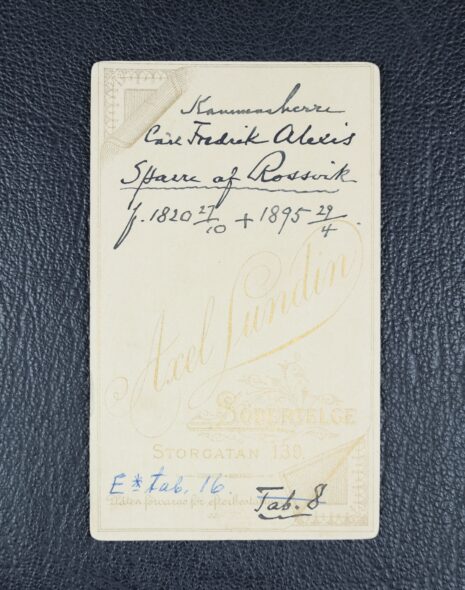 Kammarherre
Carl Fredrik Alexis
Sparre af Rossvik
f. 1820 27/10 + 1895 29/4.
Axel Lundin
SÖDERTELGE
STORGATAN 139.
E* tab. 16.
Plåten förvaras för efterbest
Tab. 8